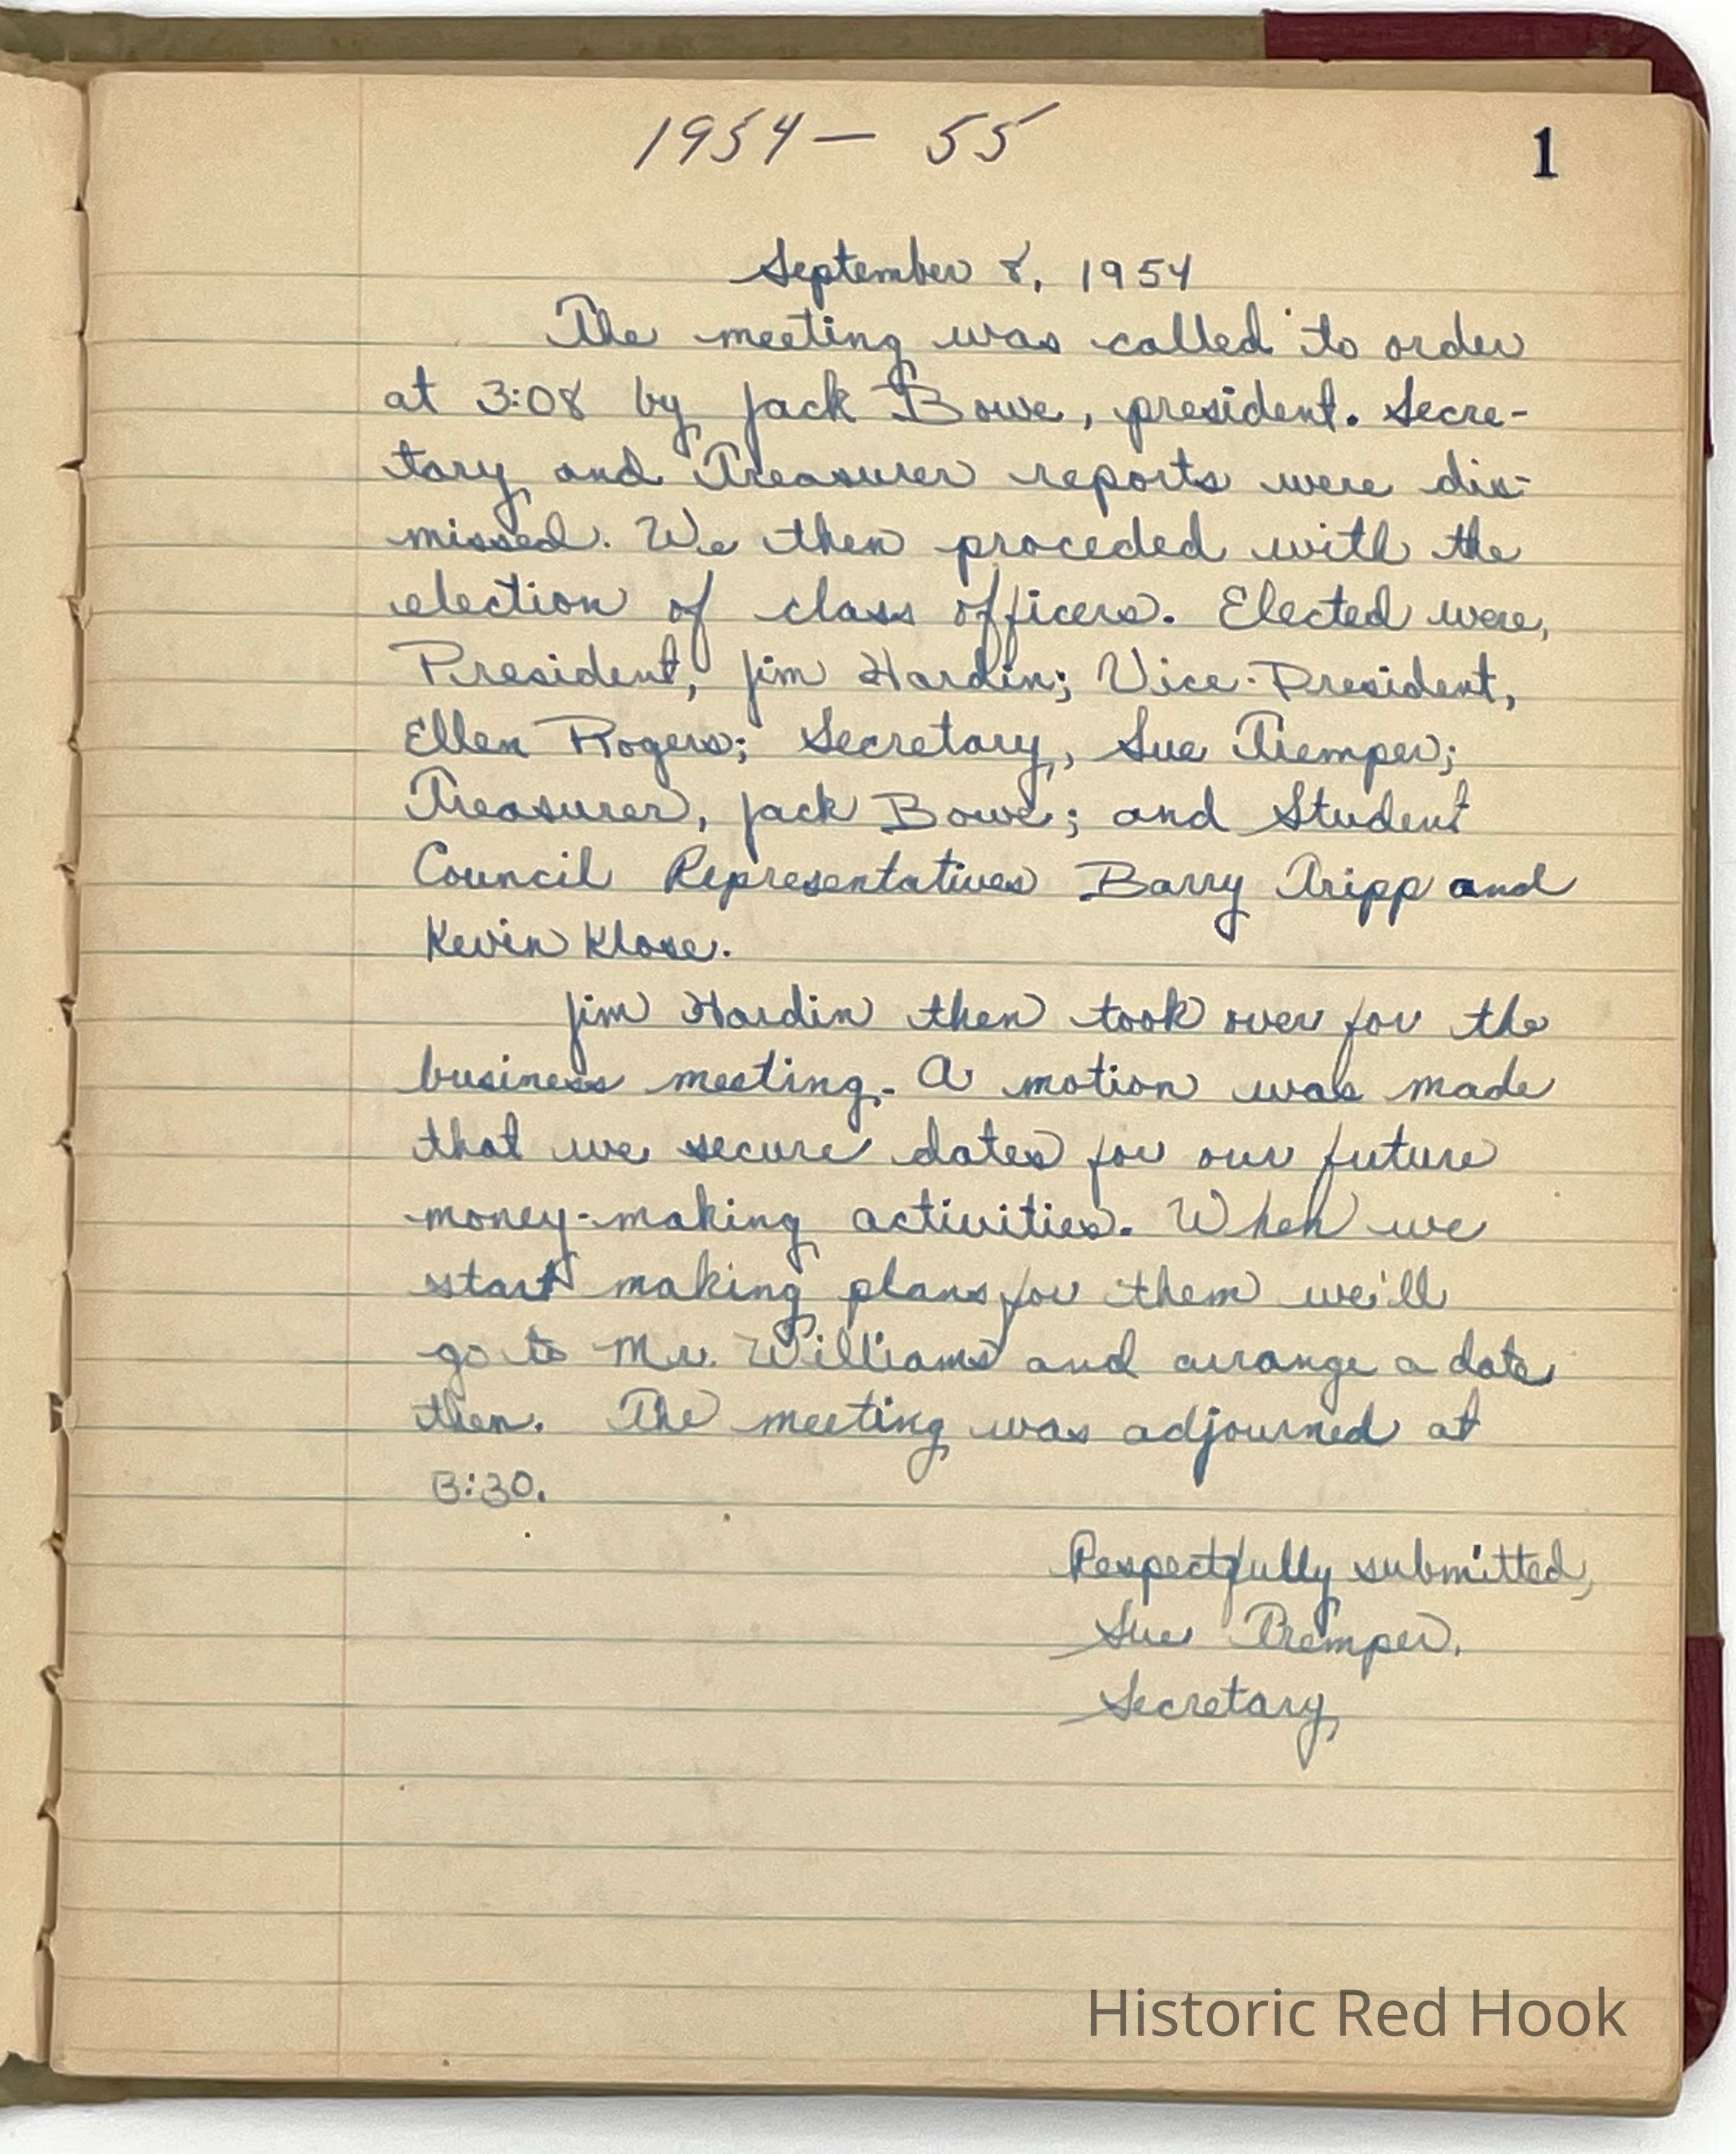 1954 — 55
1
September 8, 1954
The meeting was called to order
at 3:08 by Jack Bowe, president. Secre-
tary and Treasurer reports were dis-
missed. We then proceded with the
election of class officers. Elected were,
President, Jim Hardin; Vice-President,
Ellen Rogers; Secretary, Sue Tremper;
Treasurer, Jack Bowe; and Student
Council Representatives Barry Tripp and
Kevin Klose.
Jim Hardin then took over for the
business meeting. A motion was made
that we secure dates for our future
money-making activities. When we
start making plans for them we'll
go to Mr. Williams and arrange a date
then. The meeting was adjourned at
3:30.
Respectfully submitted,
Sue Tremper,
Secretary
Historic Red Hook